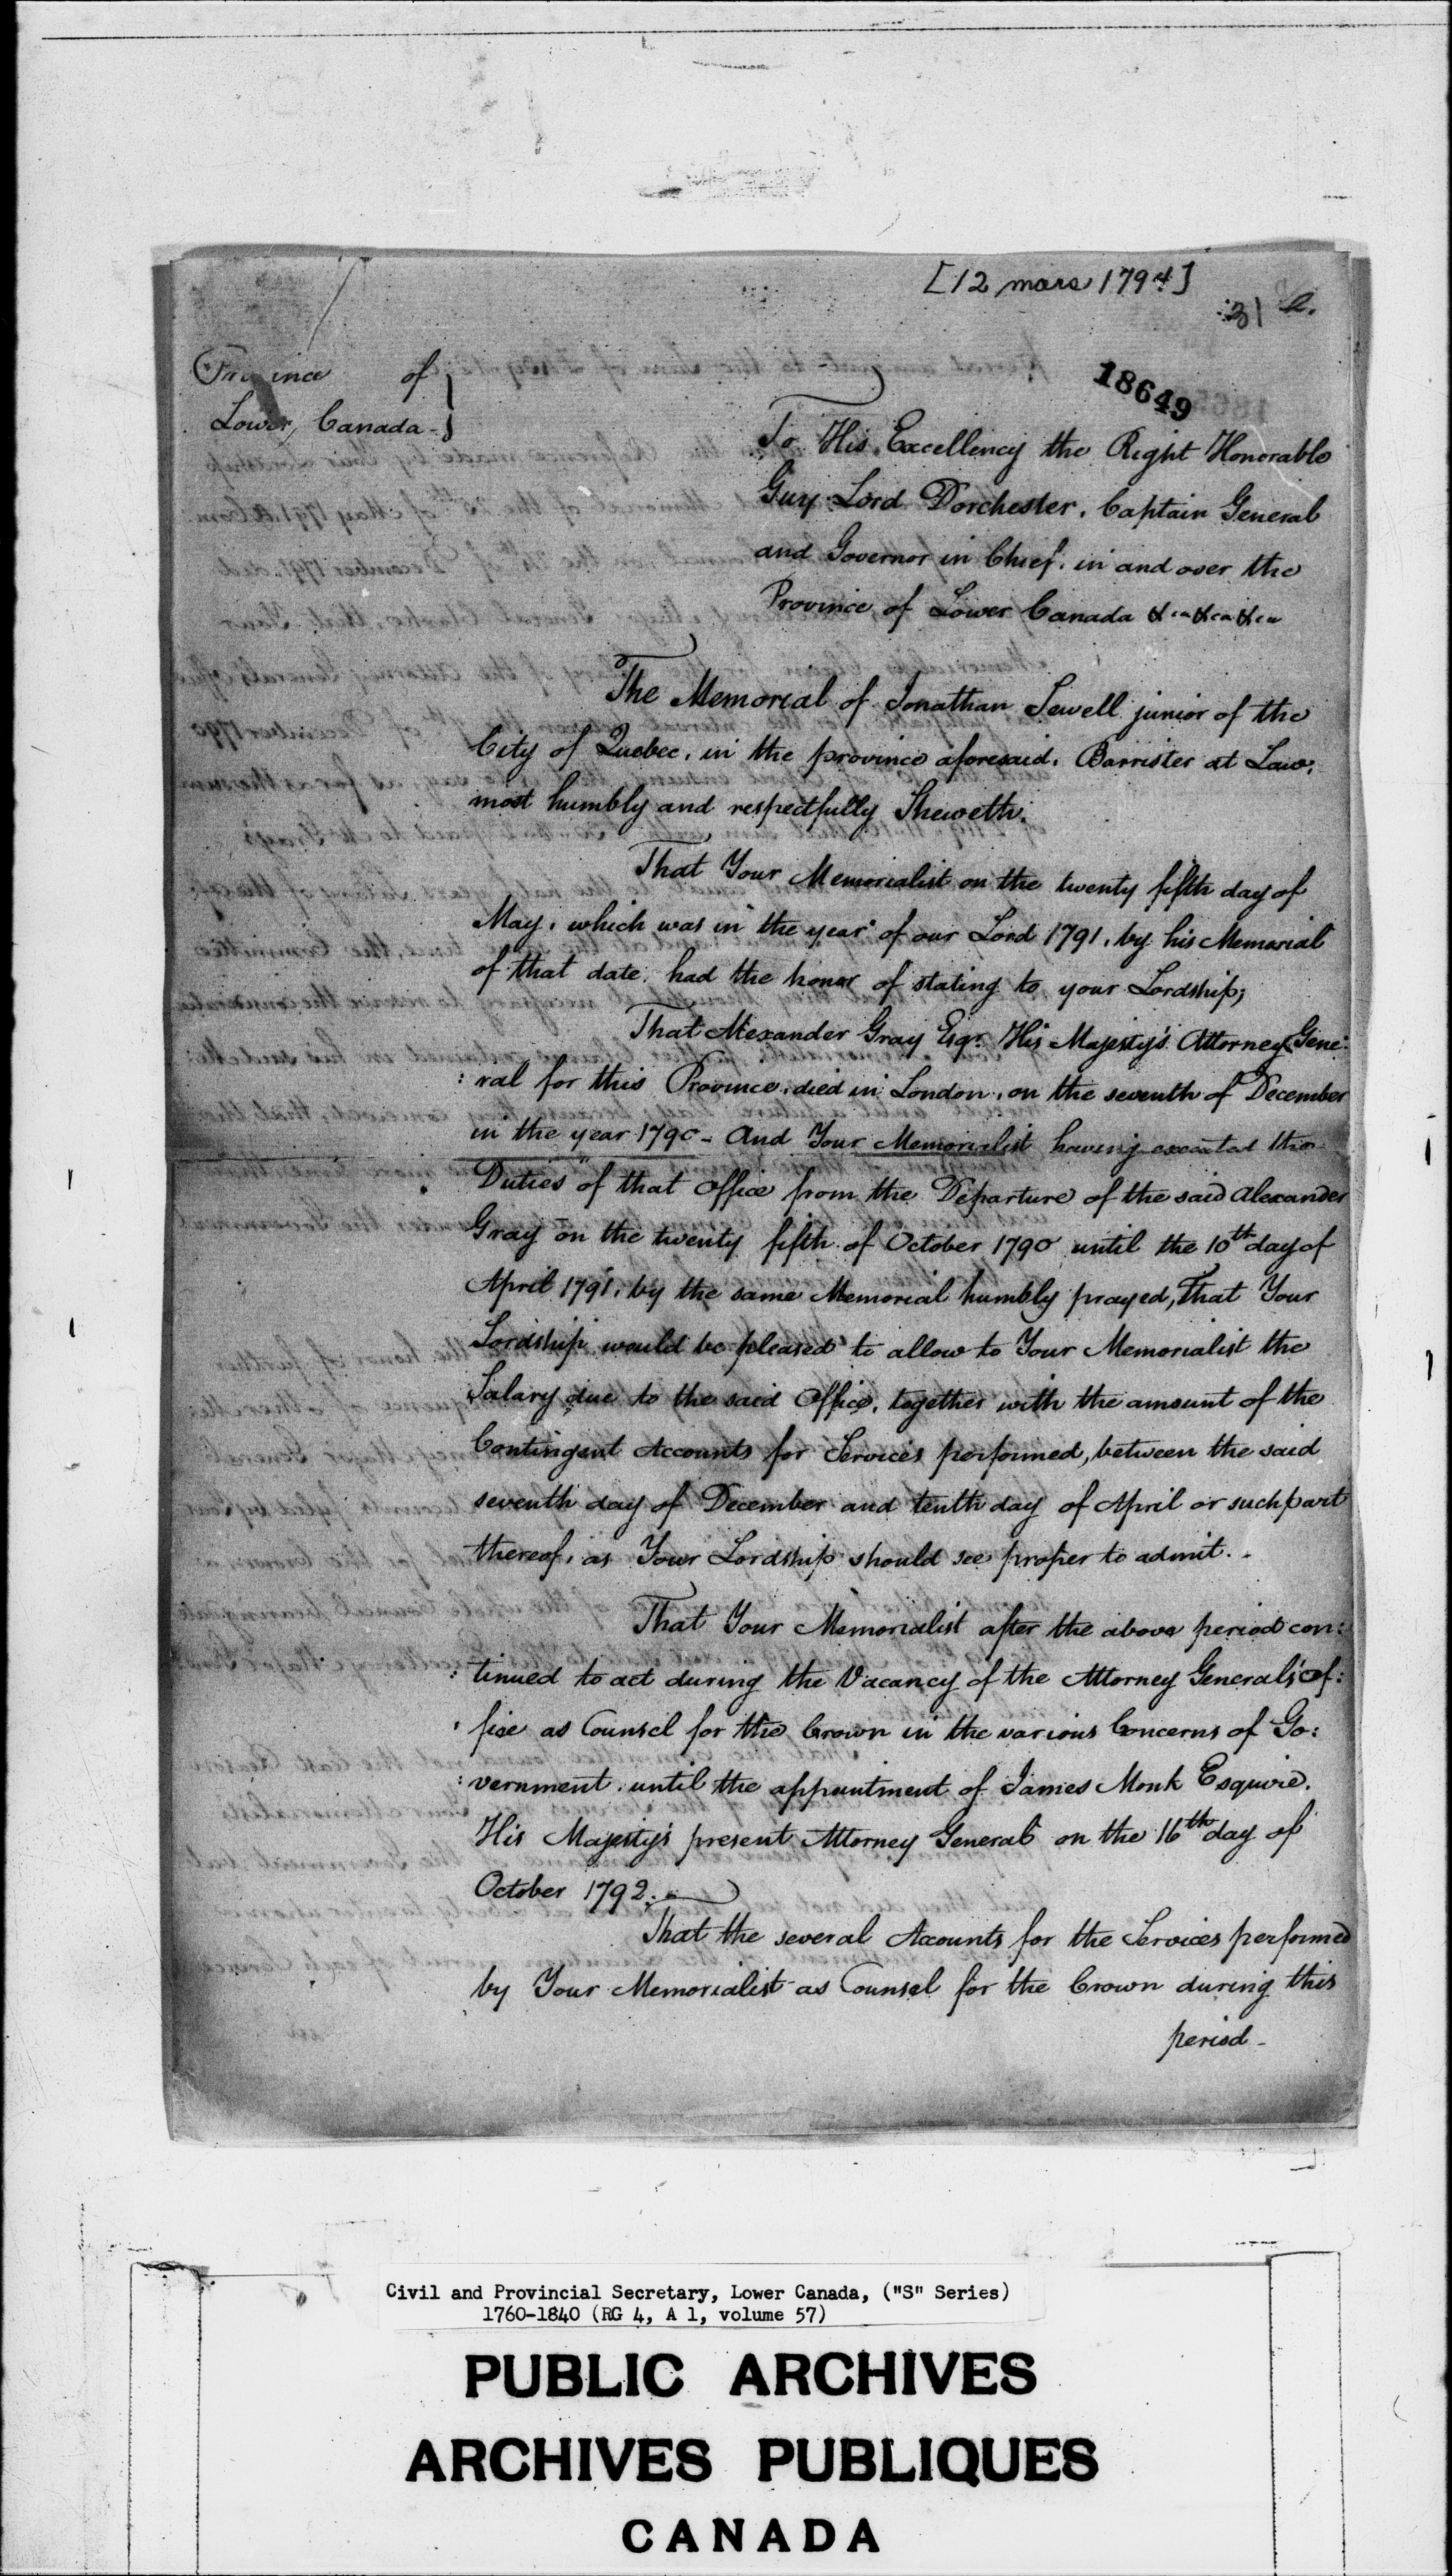 [12 mars 1794]
31
18649
Province of }
Lower Canada - }
To His Excellency the Right Honorable
Guy Lord Dorchester. Captain General
and Governor in Chief. in and over the
Province of Lower Canada &ca &ca &ca
The Memorial of Jonathan Sewell junior of the
City of Quebec, in the province aforesaid, Barrister at Law,
most humbly and respectfully Sheweth.
That Your Memorialist on the twenty fifth day of
May, which was in the year of our Lord 1791, by his Memorial
of that date, had the honor of stating to your Lordship;
That Alexander Gray Esqr. His Majesty's Attorney Gene:
:ral for this Province, died in London, on the seventh of December
in the year 1790 - And Your Memorialist having executed the
Duties of that Office from the Departure of the said Alexander
Gray on the twenty fifth of October 1790 until the 10th day of
April 1791, by the same Memorial humbly prayed, That Your
Lordship would be pleased to allow to Your Memorialist the
Salary due to the said Office, together with the amount of the
Contingent Accounts for Services performed, between the said
seventh day of December and tenth day of April or such part
thereof, as Your Lordship should see proper to admit. -
That Your Memorialist after the above period con:
:tinued to act during the Vacancy of the Attorney General's of:
:fice as Counsel for the Crown in the various Concerns of Go:
:vernment, until the appointment of James Monk Esquire.
His Majesty's present Attorney General on the 16th day of
October 1792. -
That the several Accounts for the Services performed
by Your Memorialist as Counsel for the Crown during this
period -
Civil and Provincial Secretary, Lower Canada, ("S" Series)
1760-1840 (RG 4, A 1, volume 57)
PUBLIC ARCHIVES
ARCHIVES PUBLIQUES
CANADA